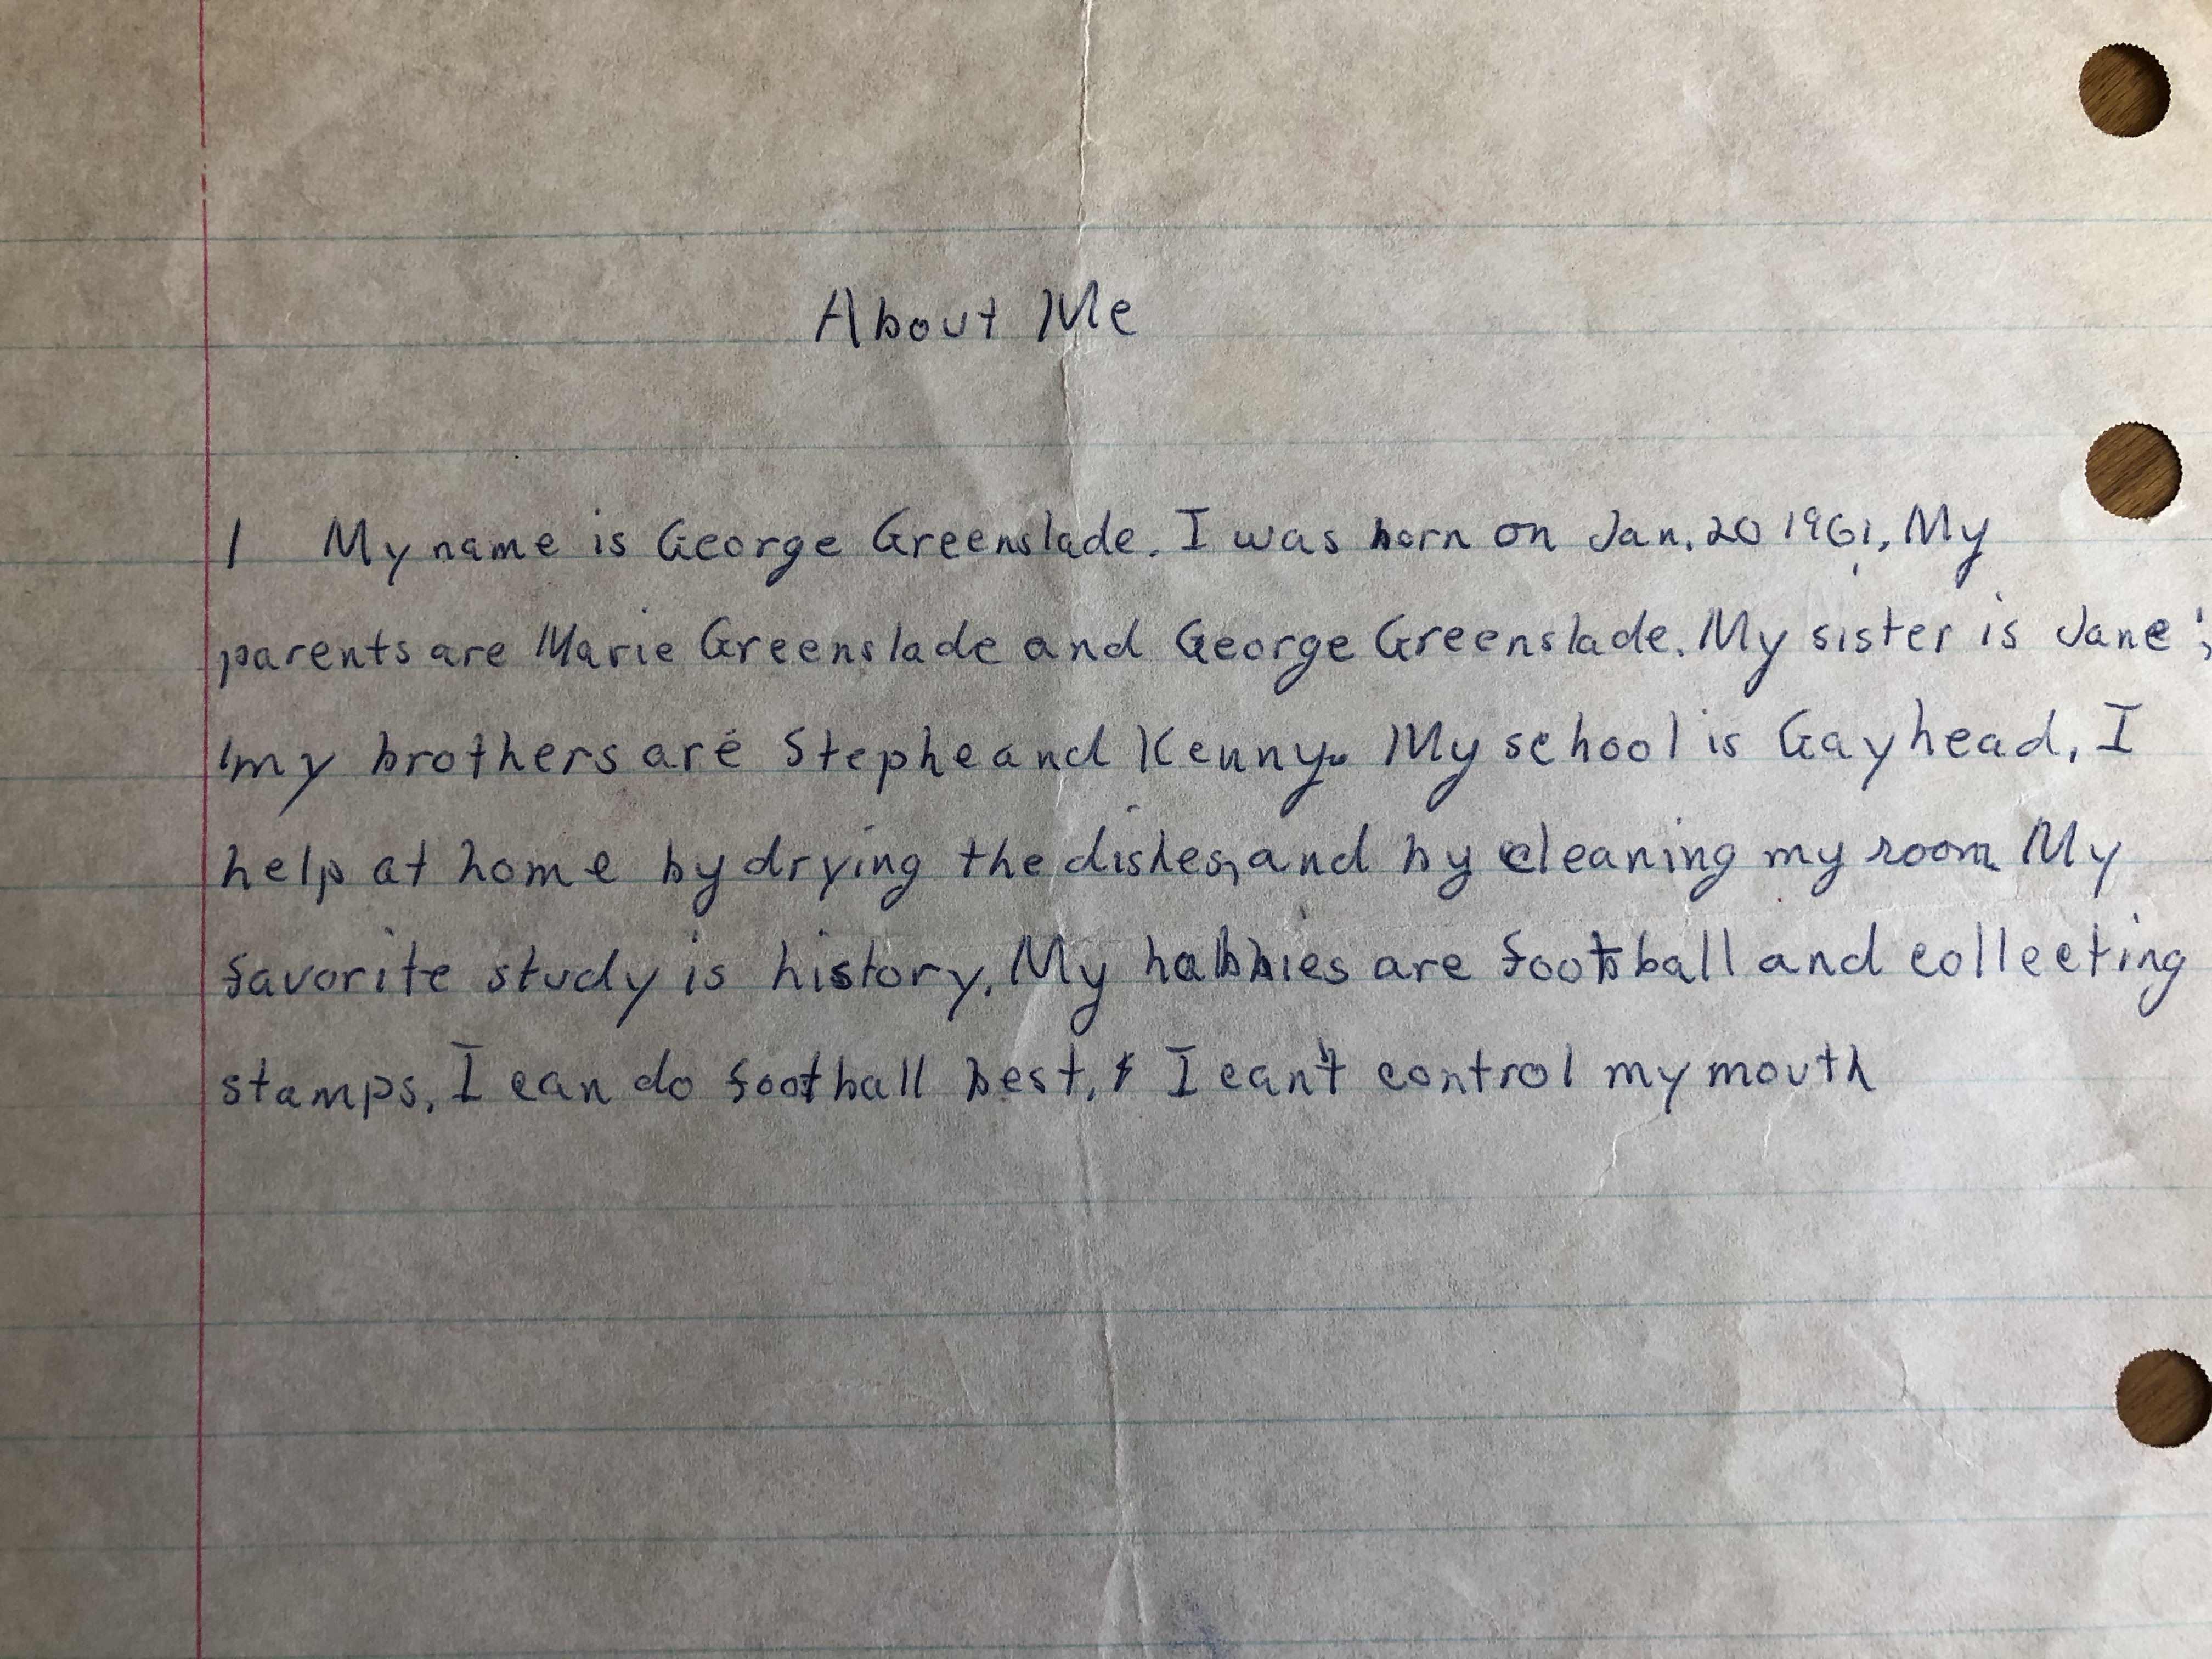 About Me
1 My name is George Greenslade. I was born on Jan. 20 1961, My
parents are Marie Greenslade and George Greenslade. My sister is Jane;
my brothers are Stephe and Kenny. My school is Gayhead, I
help at home by drying the dishes, and by cleaning my room My
favorite study is history. My hobbies are football and collecting
stamps. I can do football best. I can't control my mouth